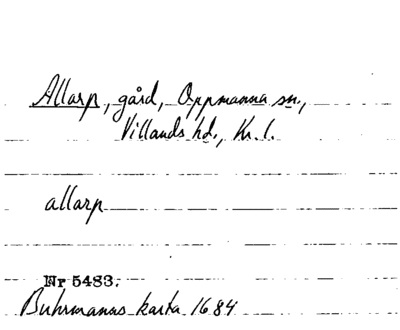 Allarp, gård, Oppmanna sn.,
Villands hd., Kr. l.
allarp
Nr 5483.
Buhrmanns karta 1684